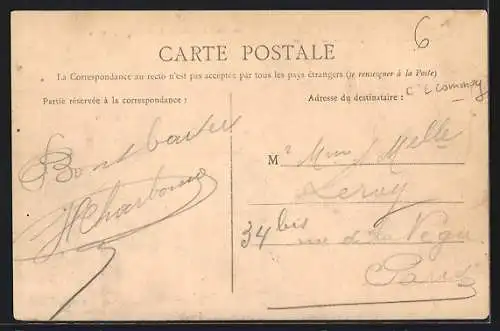 6
CARTE POSTALE
La Correspondance au recto n'est pas acceptée par tous les pays étrangers (se renseigner à la Poste)
Partie réservée à la correspondance :
Adresse du destinataire :
M
Melle
Leroy
34 bis
rue de la Vega
Paris